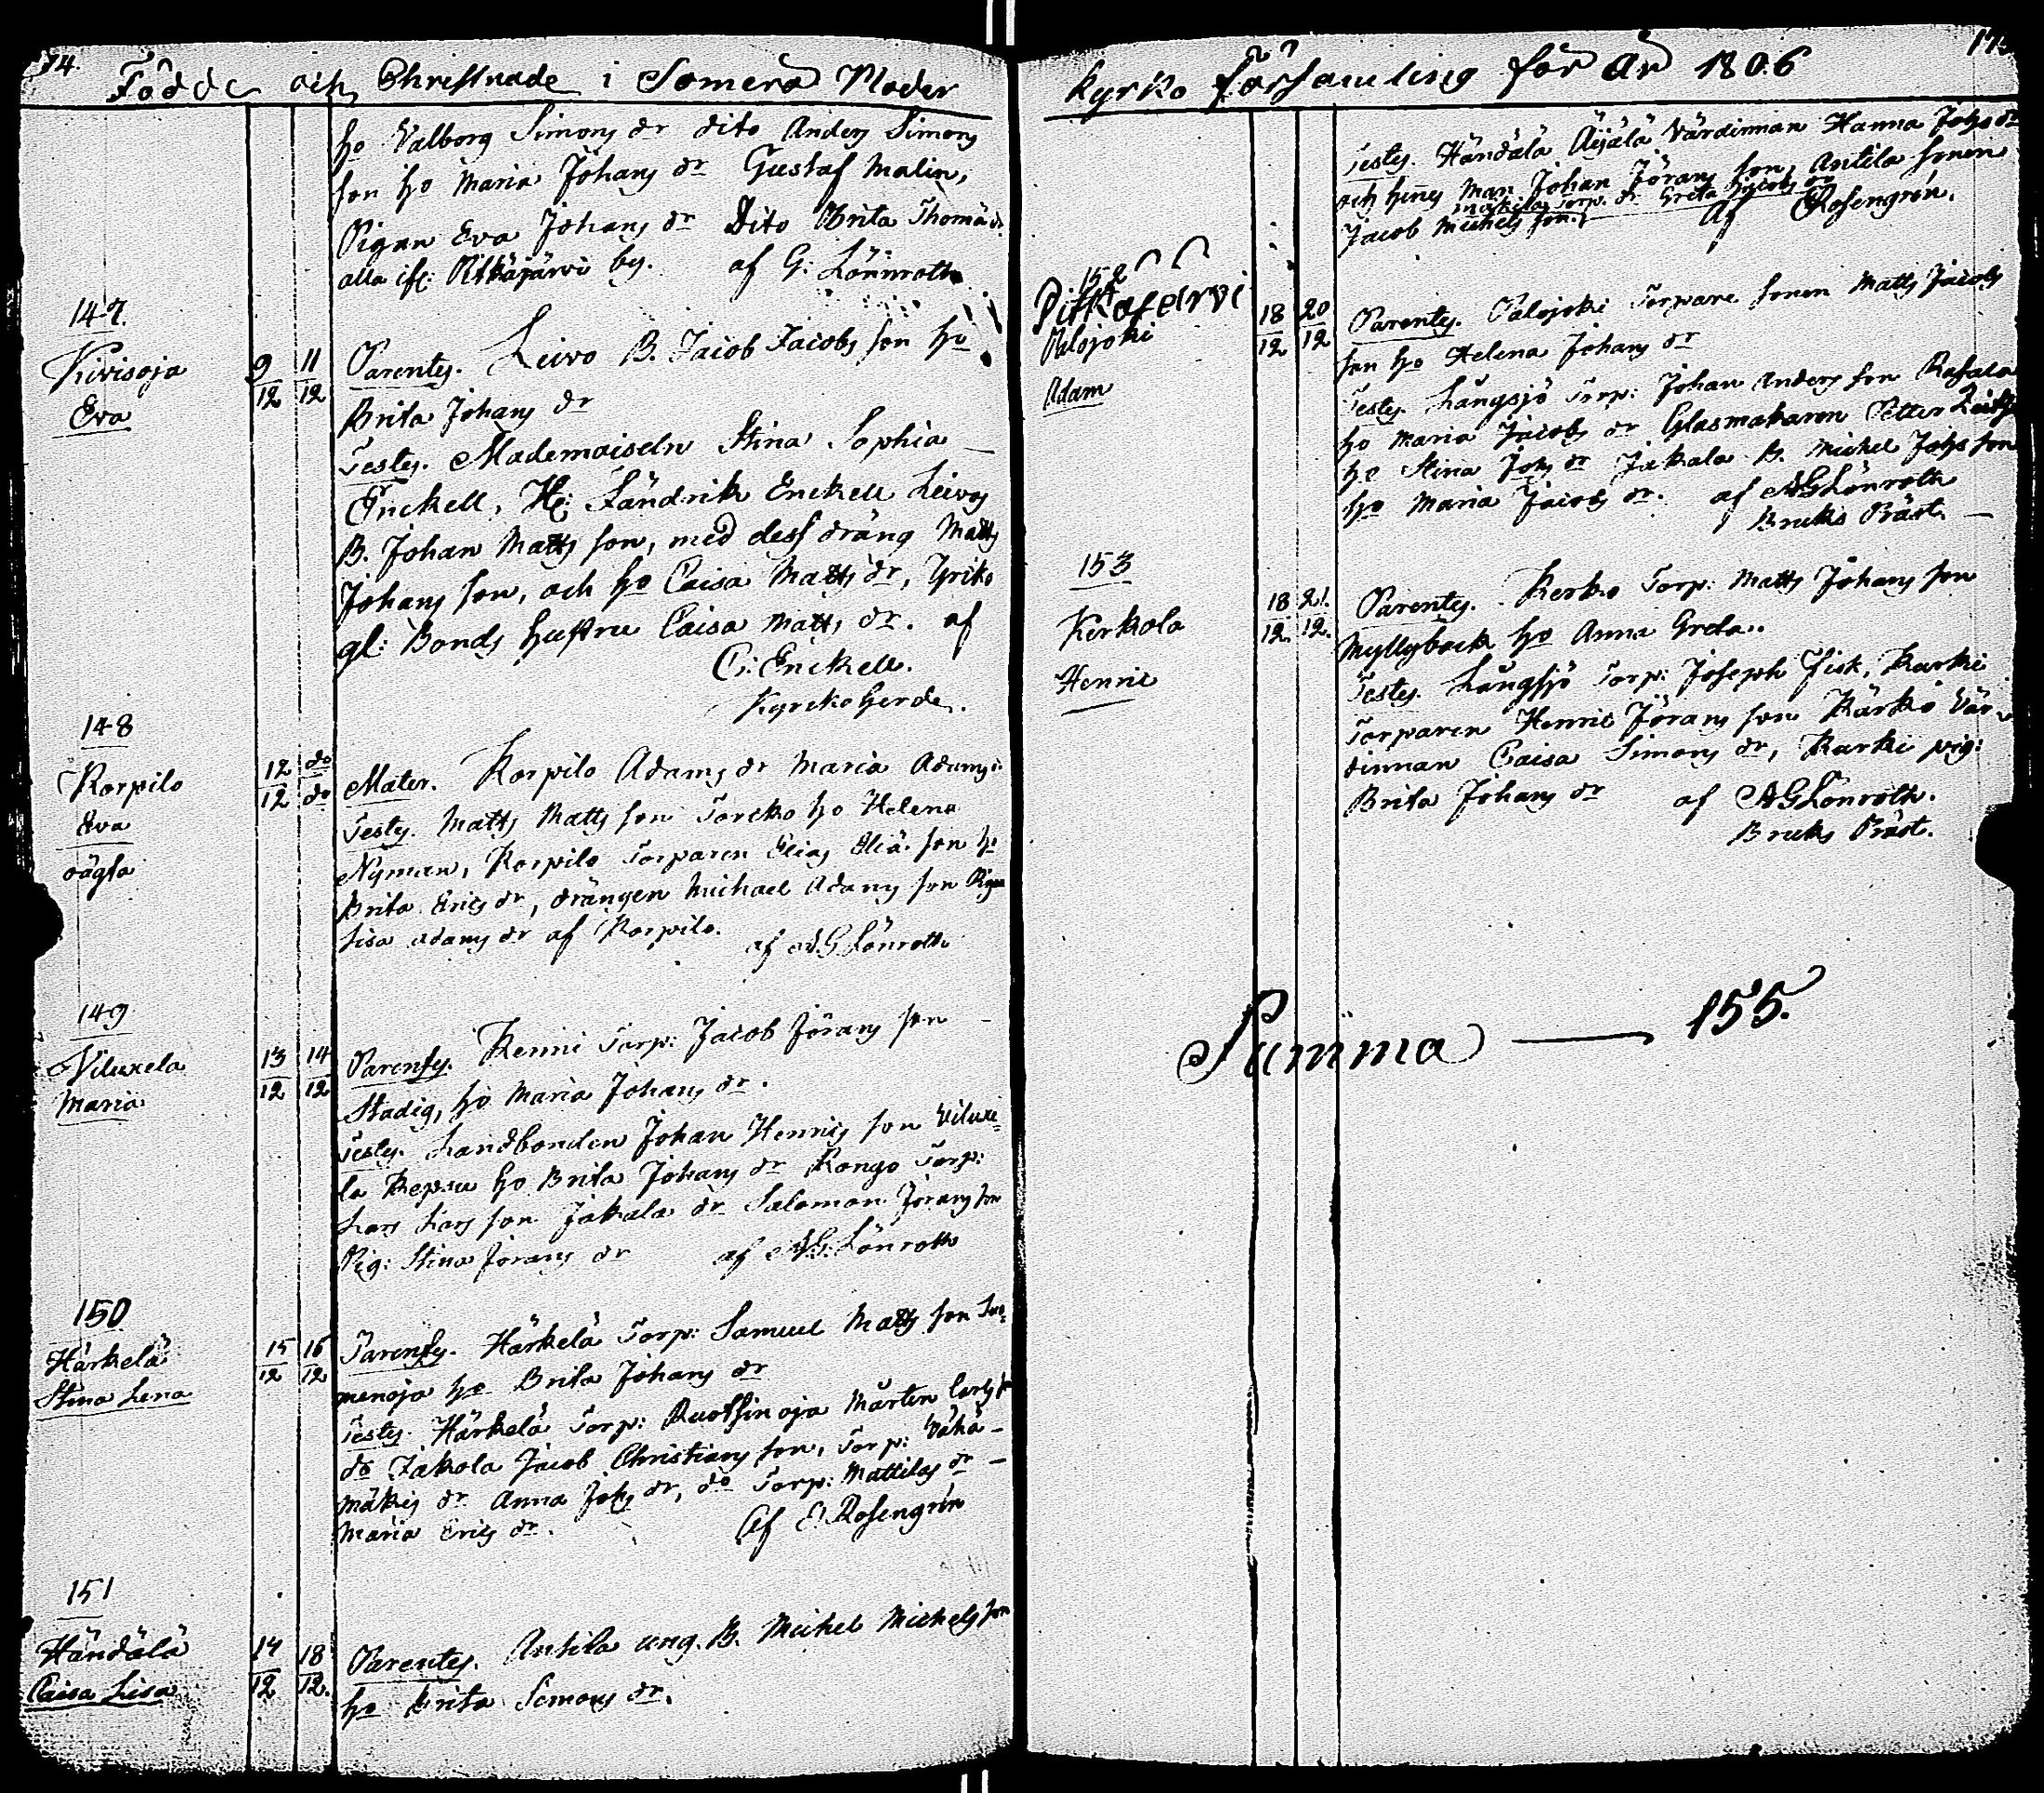 174.
Födde och Christnade i Somero Moder
ho Valborg Simons dr dito Anders Simons
son ho Maria Johans dr Gustaf Malin,
Pigan Eva Johans dr Dito Brita Thomæ dr
alla ifr: Pitkäjärvi by. af G: Lönnroth
147.
Kivisoja
Eva
9/12 11/12
Parentes. Leivo B. Jacob Jacobs son ho
Brita Johans dr
Testes. Mademoiseln Stina Sophia
Enckell, Hr: Fändrik Enckell Leivos
B. Johan Matts son, med dess dräng Matts
Johans son, och ho Caisa Matts dr, Yriko
gl: Bonds hustru Caisa Matts dr. af
C: Enckell.
Kyrckoherde.
148
Korpilo
Eva
oägta
12/12 do/do
Mater. Korpilo Adams dr Maria Adams dr
Testes. Matts Matts son Torcko ho Helena
Nyman, Korpilo Torparen Elias Eliæ son ho
Brita Erics dr, drängen Michael Adams son Pigan
Lisa Adams dr af Korpilo.
af A G Lönroth
149
Viluxela
Maria
13/12 14/12
Parentes. Renni Torp: Jacob Jörans son
Stadig, ho Maria Johans dr.
Testes. Landbonden Johan Henrics son Viluxe=
la Repsu ho Brita Johans dr Kongo Torp:
Lars Lars son Jakala dr Salomon Jörans son
Pig: Stina Jörans dr af A G: Lönroth
150
Härkelä
Stina Lena
15/12 16/12
Parentes. Härkelä Torp: Samuel Matts son Suo=
menoja ho Brita Johans dr
Testes. Härkelä Torp: Ruotsinoja Mårten Carls son
do Jakola Jacob Christians son, Torp: Vähä-
mäkis dr Anna Johs dr, do Torp: Mattilas dr -
Maria Erics dr. Af E. Rosengrén
151
Händälä
Caisa Lisa
14/12 18/12.
Parentes. Antila ung. B. Michel Michels son
ho Brita Simons dr.
Kyrko församling för år 1806
Testes. Händälä Äijälä Värdinnan Hanna Johs dr
och hennes man Johan Jörans son, Antila sonen
mäkilas Torp. dr Greta Jacobs dr
Jacob Michels son. Af Rosengrén.
152
Pitkäjerwi
Palojoki
Adam
18/12 20/12
Parentes. Palojoki Torpare sonen Matts Jacobs
son ho Helena Johans dr
Testes. Långsjö Torp: Johan Anders son
ho Maria Jacobs dr Glasmakaren Petter
ho Stina Johs dr Jakala B. Michel Johs son
ho Maria Jacobs dr. af A G Lönroth
Bruks Präst. -
153
Kerkola
Henric
18/12. 21./12.
Parentes. Kerko Torp: Matts Johans son
Myllyback ho Anna Greta.
Testes. Långsjö Torp: Joseph Fisk, Karki
Torparen Henric Jörans son Kärko Vär-
dinnan Caisa Simons dr, Karki pig:
Brita Johans dr af A G Lönroth.
Bruks Präst.
Summa — 155.